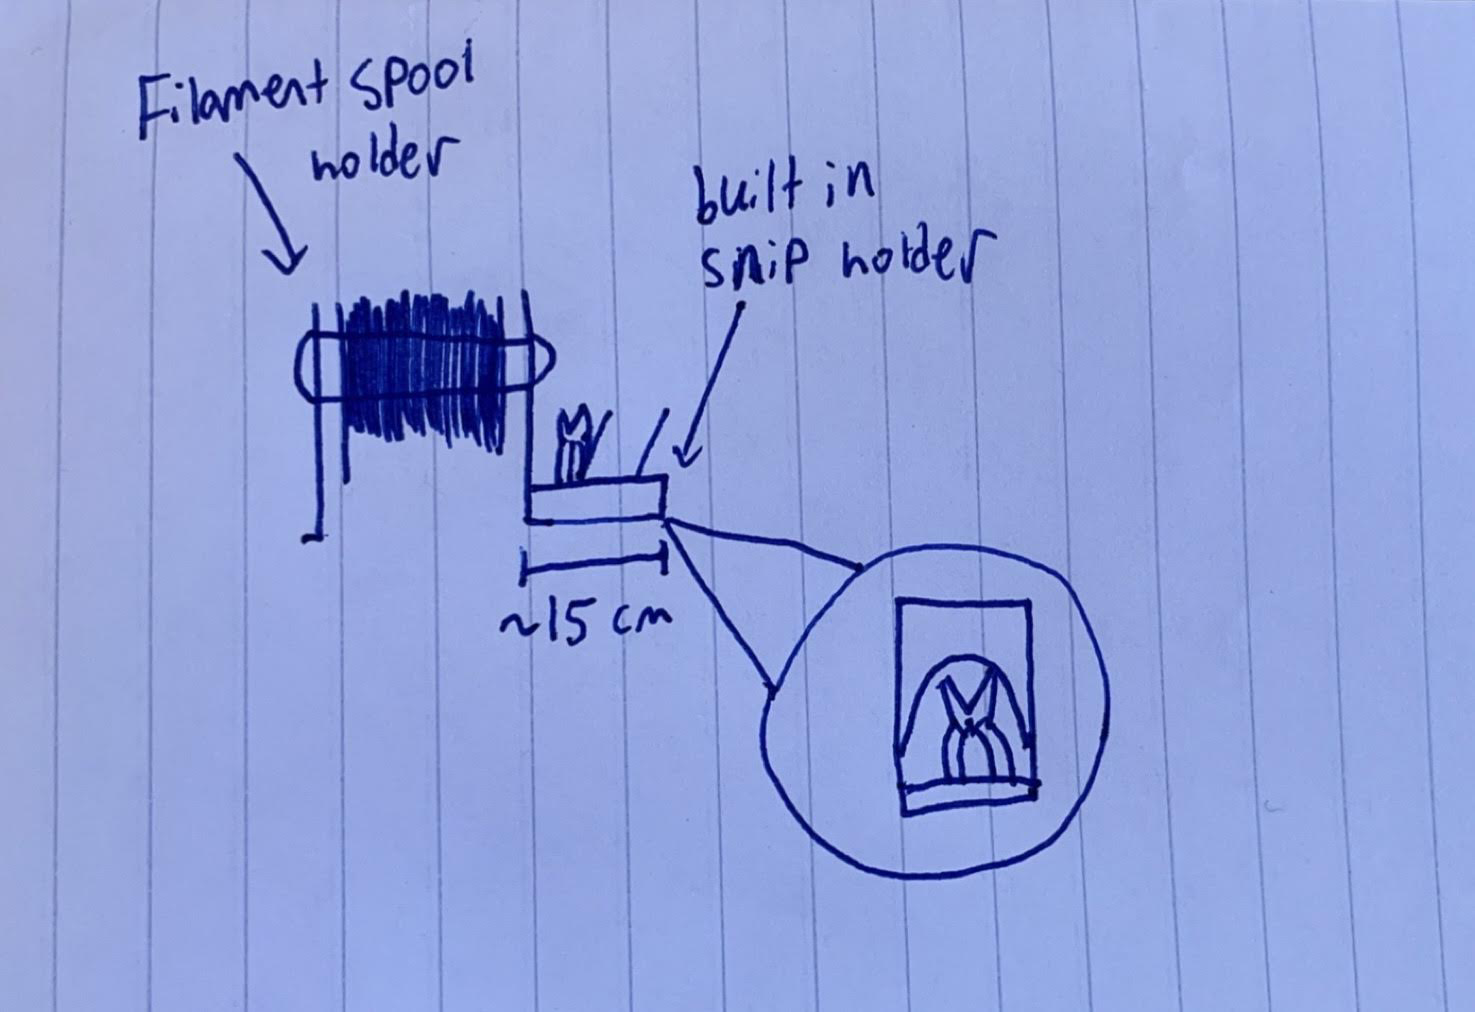 Filament spool
holder
built in
snip holder
~15 cm